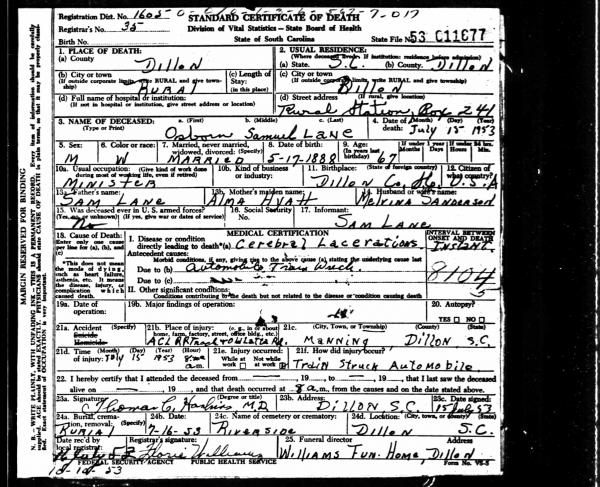 Registration Dist. No. 1605
STANDARD CERTIFICATE OF DEATH
Registrar's No. 35
Division of Vital Statistics — State Board of Health
Birth No.
State of South Carolina
State File No. 53 011677
1. PLACE OF DEATH:
(a) County
Dillon
2. USUAL RESIDENCE:
(Where deceased lived. If institution: residence before admission)
(a) State. S.C. (b) County. Dillon
(b) City or town
(If outside corporate limits, write RURAL and give township)
Rural
(c) Length of Stay
(in this place)
(c) City or town
(If outside corporate limits, write RURAL and give township)
Dillon
(d) Full name of hospital or institution:
(If not in hospital or institution, give street address or location)
(d) Street address
(If rural, give location)
Rural Station, Box 241
3. NAME OF DECEASED:
(Type or Print)
a. (First) b. (Middle) c. (Last)
Osborn Samuel Lane
4. Date of (Month) (Day) (Year)
death: July 15 1953
5. Sex:
M
6. Color or race:
W
7. Married, never married, widowed, divorced: (Specify)
Married
8. Date of birth:
5-17-1888
9. Age:
(In years last birthday)
67
If under 1 year
Months Days
If under 24 hrs.
Hours Min.
10a. Usual occupation (Give kind of work done during most of working life, even if retired)
Minister
10b. Kind of business or industry:
11. Birthplace: (State or foreign country)
Dillon Co.
12. Citizen of what country?
U.S.A
13a. Father's name:
Sam Lane
13b. Mother's maiden name:
Alma Hyatt
14. Husband or wife's name:
Melvina Sanderson
15. Was deceased ever in U. S. armed forces?
(Yes, no or unknown) (If yes, give war or dates of service)
No
16. Social Security No.
17. Informant:
Sam Lane
18. Cause of Death:
Enter only one cause per line for (a), (b), and (c)
MEDICAL CERTIFICATION
INTERVAL BETWEEN ONSET AND DEATH
I. Disease or condition
directly leading to death*(a) Cerebral Lacerations.
Instant.
Antecedent causes:
Morbid conditions, if any, giving rise to the above cause (a), stating the underlying cause last
Due to (b) Automobile Train Wreck.
Due to (c)
8104
5
*This does not mean the mode of dying, such as heart failure, asthenia, etc. It means the disease, injury, or complication which caused death.
II. Other significant conditions:
Conditions contributing to the death but not related to the disease or condition causing death
19a. Date of operation:
19b. Major findings of operation:
20. Autopsy?
YES NO
21a. Accident (Specify)
Suicide
Homicide
21b. Place of injury: (e. g., in or about home, farm, factory, street, office bldg., etc.)
21c. (City, Town, or Township) (County) (State)
Manning Dillon S.C.
21d. Time (Month) (Day) (Year) (Hour)
of injury: July 15 1953 8 a.m.
21e. Injury occurred:
While at work Not while at work
21f. How did injury occur?
Train Struck Automobile
22. I hereby certify that I attended the deceased from , 19 , to , 19 , that I last saw the deceased
alive on , 19 , and that death occurred at 8 a.m., from the causes and on the date stated above.
23a. Signature (Degree or title)
Thomas C. M.D.
23b. Address:
Dillon S.C.
23c. Date signed:
15 July 53
24a. Burial, cremation, removal: (Specify)
Burial
24b. Date:
7-16-53
24c. Name of cemetery or crematory:
Riverside
24d. Location: (City, town, or county) (State)
Dillon S.C.
Date rec'd by local registrar:
Registrar's signature:
Williams
25. Funeral director
Williams Fun. Home, Dillon
FEDERAL SECURITY AGENCY PUBLIC HEALTH SERVICE
Form No. VS-5
MARGIN RESERVED FOR BINDING